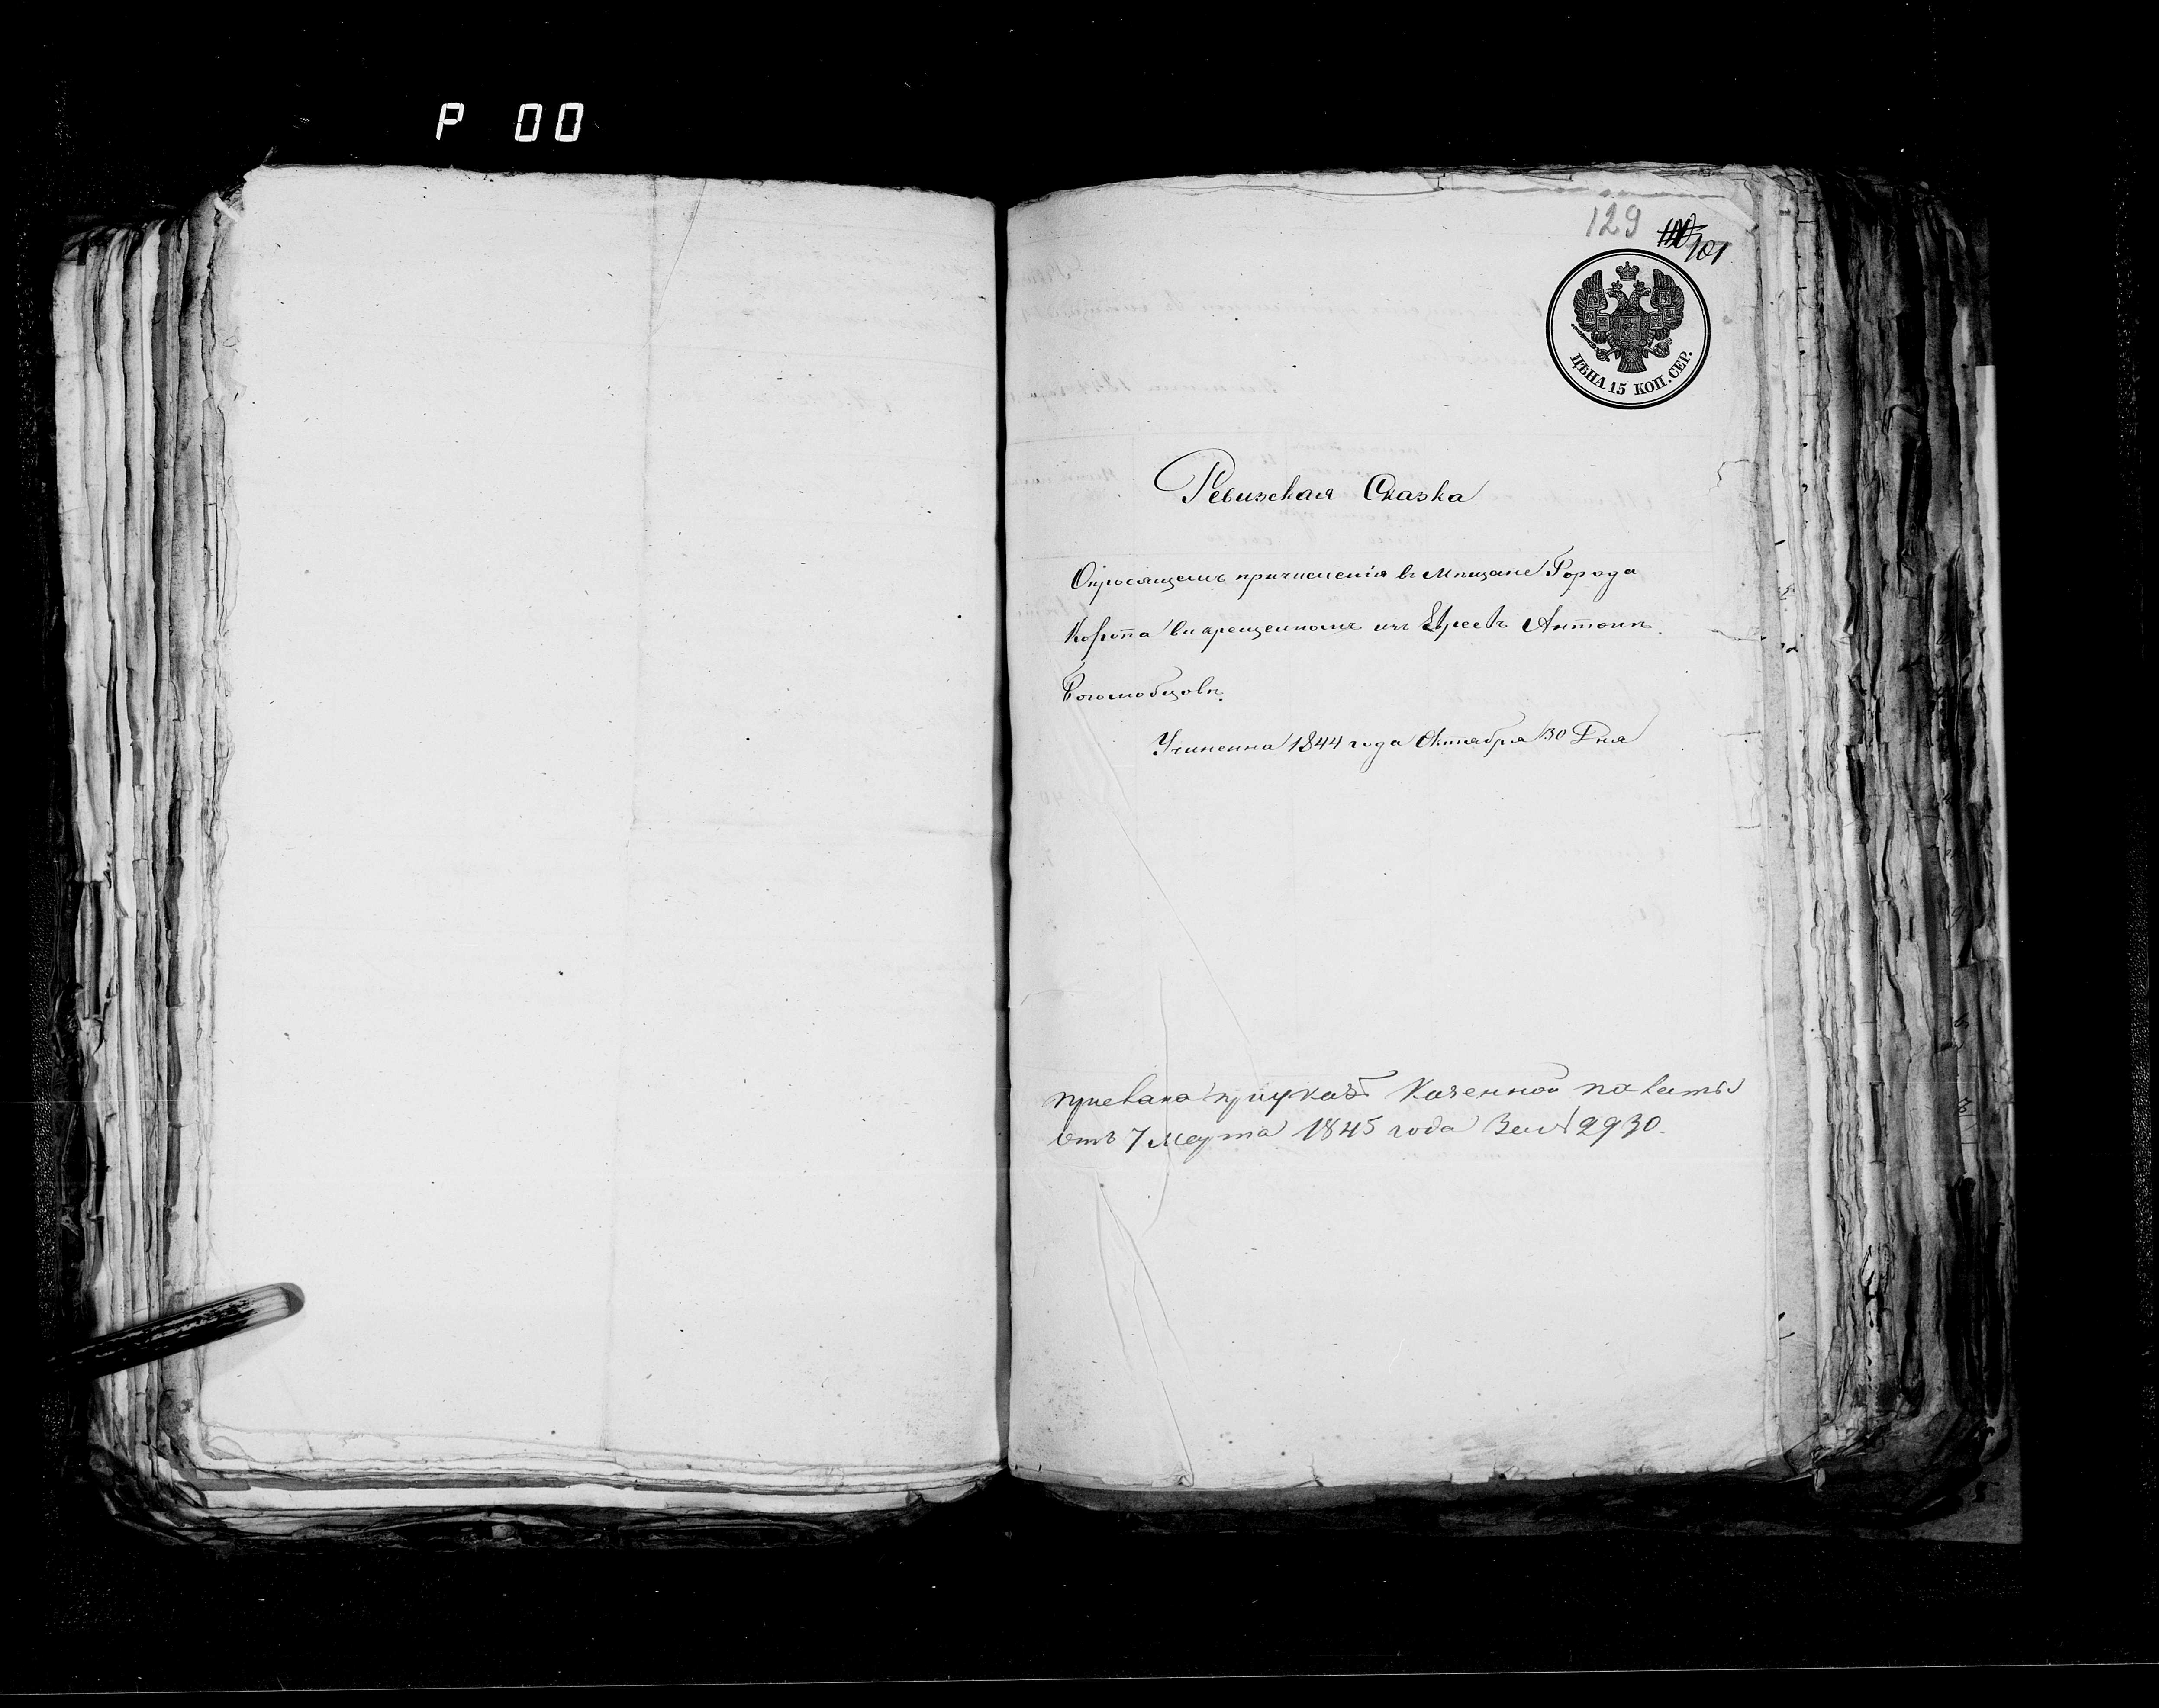 P 00
129
101
ЦѢНА 15 КОП. СЕР.
Ревизская Сказка
Опросящемъ причисленія въ Мѣщане Города
Коропа выкрещенномъ изъ Евреевъ Антонѣ
Боголюбцовѣ.
Учиненна 1844 года Октября 30 Дня
при указѣ Казенной палаты
отъ 7 Марта 1845 года За № 2930.